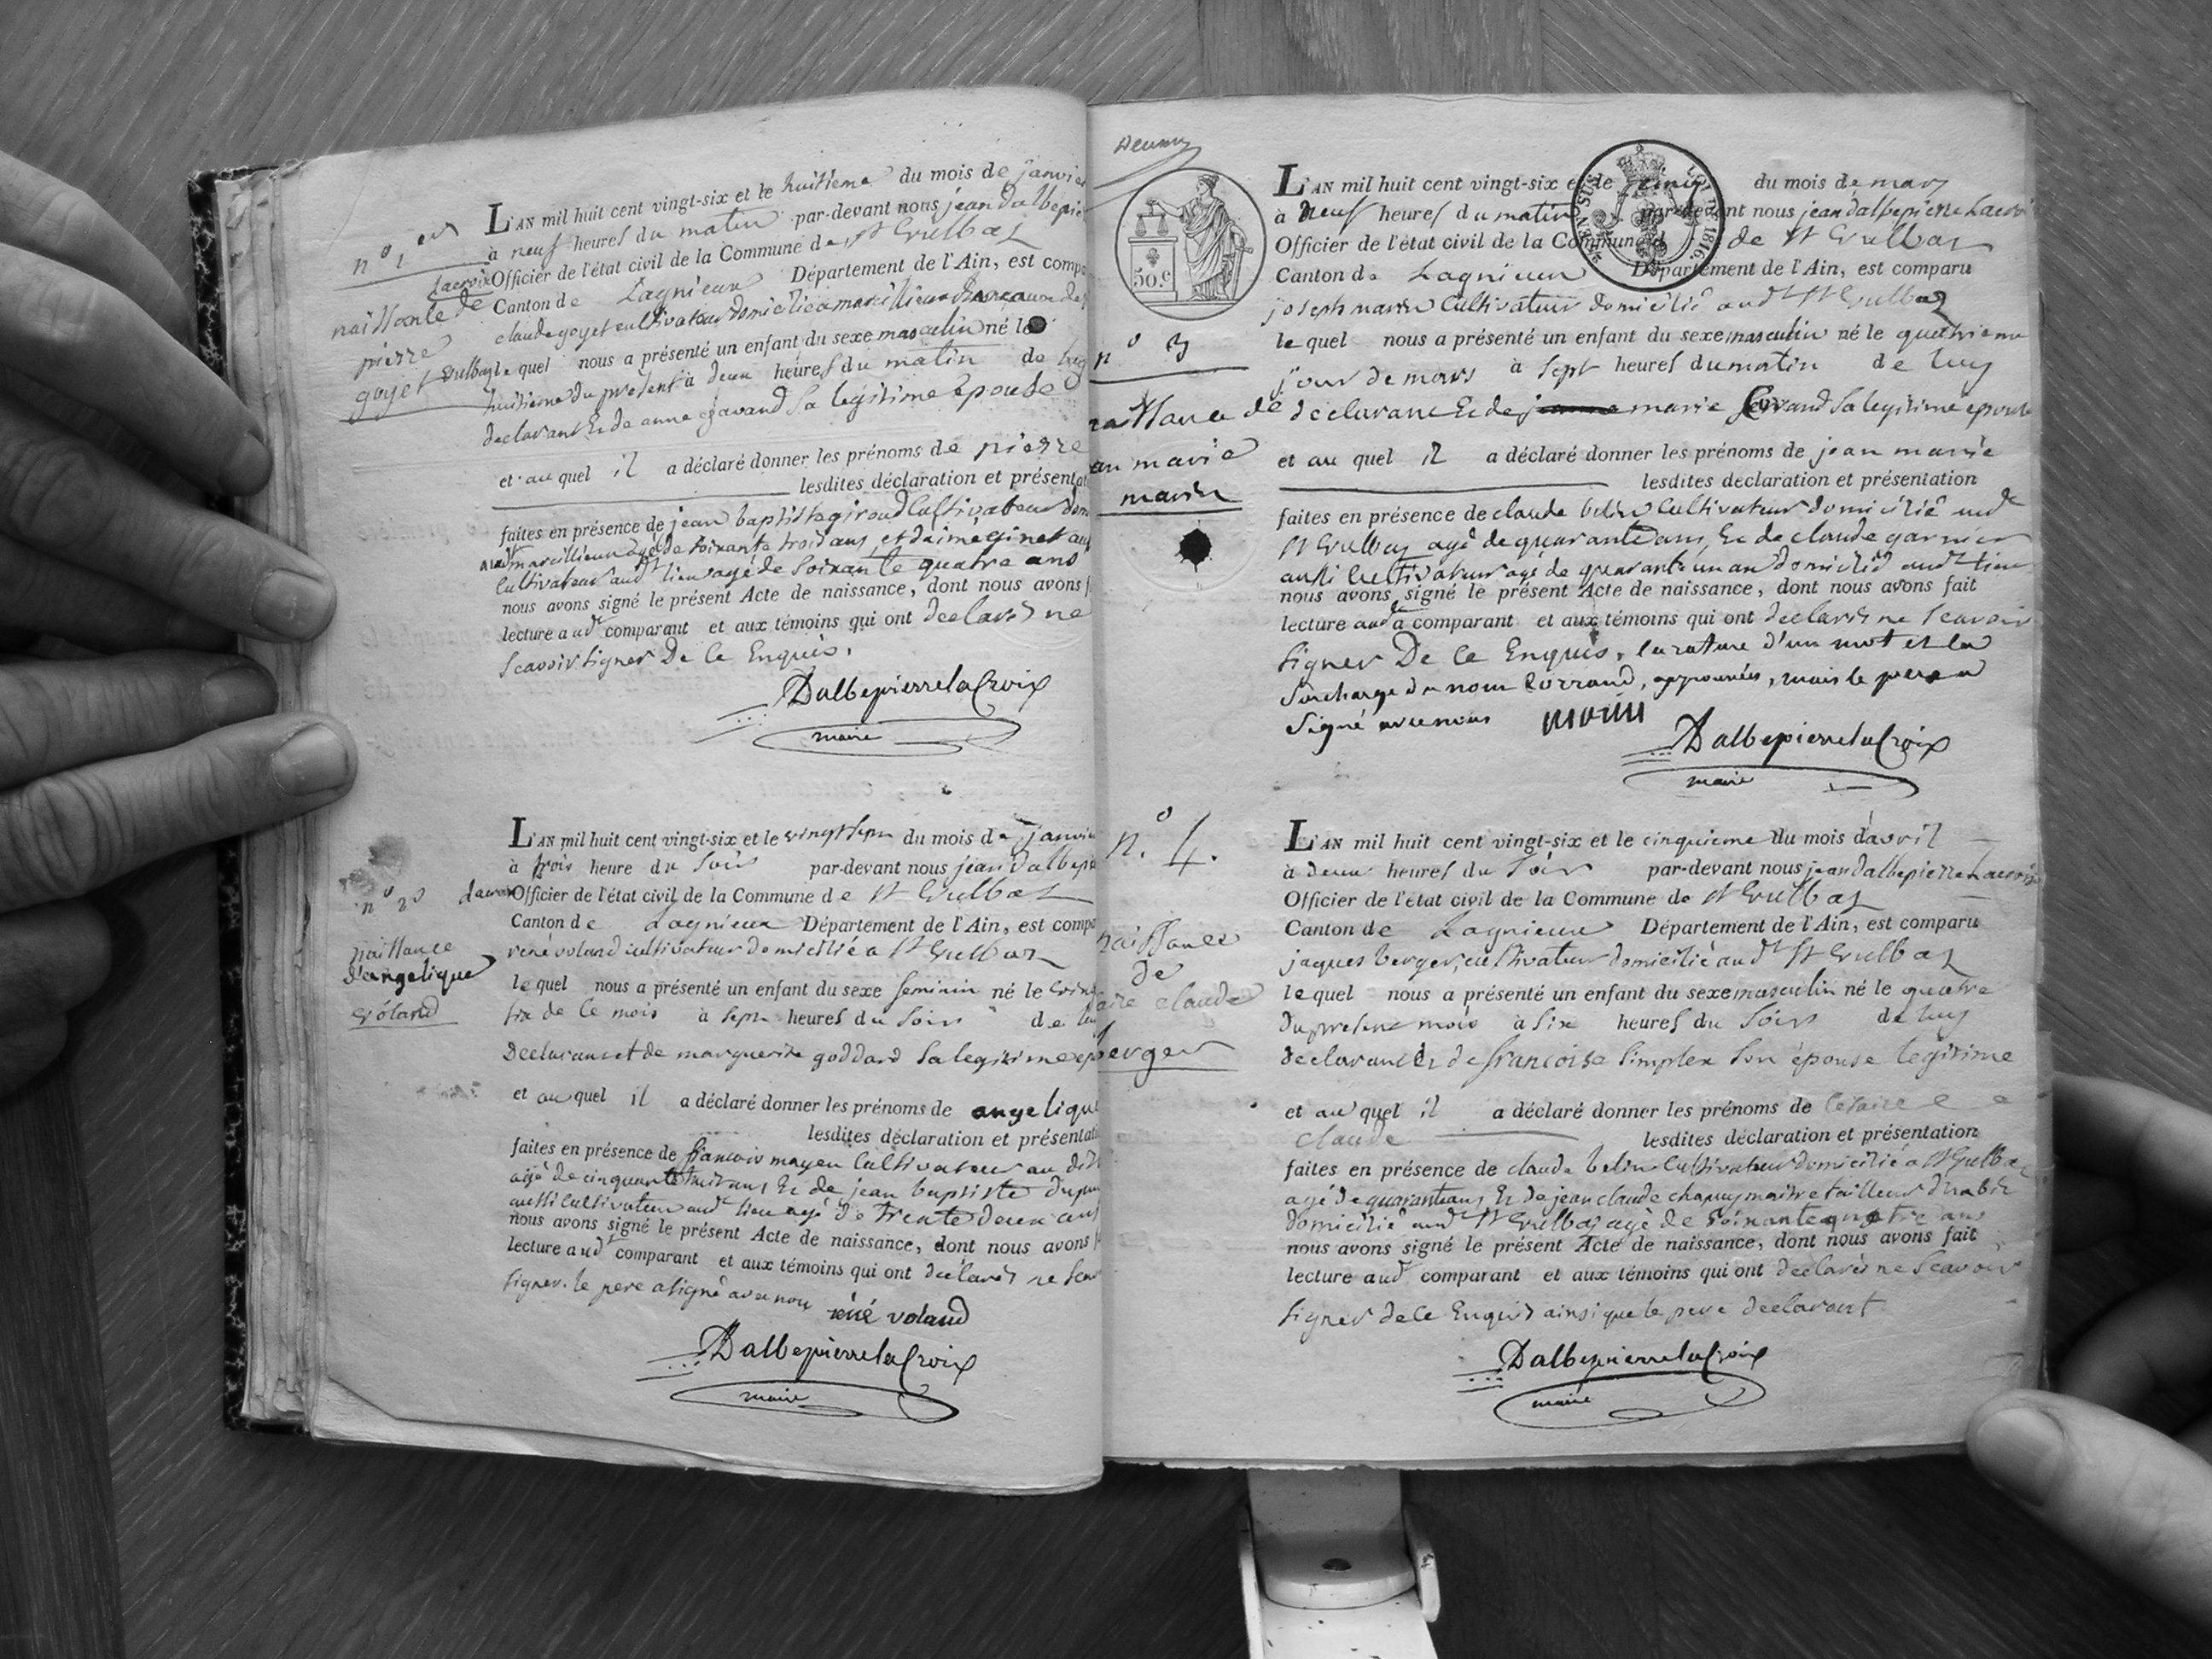 n° 1er
naissance de
pierre
goyet
L'AN mil huit cent vingt-six et le huitieme du mois de janvier
à neuf heures du matin par-devant nous jean dalbepierre
lacroix Officier de l'état civil de la Commune de St Vulbas
Canton de Lagnieux Département de l'Ain, est comparu
claude goyet cultivateur domicilié a marcillieux
vulbas le quel nous a présenté un enfant du sexe masculin né le
huitieme du present à deux heures du matin de luy
declarant Et de anne Savand sa légitime épouse
et au quel il a déclaré donner les prénoms de pierre
lesdites déclaration et présentat
faites en présence de jean baptiste giroud Cultivateur dom
aud marcillieux agé de soixante trois ans, et d'aimé ginet aus
Cultivateur audt lieu agé de soixante quatre ans
nous avons signé le présent Acte de naissance, dont nous avons f
lecture audt comparant et aux témoins qui ont declarés ne
scavoir signer De Ce Enquis.
DalbepierrelaCroix
maire
n° 2
naissance
d'angelique
voland
L'AN mil huit cent vingt-six et le vingt sept du mois de janvier
à trois heure du soir par-devant nous jean dalbepie
lacroix Officier de l'état civil de la Commune de St Vulbas
Canton de Lagnieux Département de l'Ain, est compa
réné voland cultivateur domicilié a St Vulbas
le quel nous a présenté un enfant du sexe feminin né le vingt
six de Ce mois à sept heures du soir de luy
Declarant et de marguerite goddard sa legitime ep
et au quel il a déclaré donner les prénoms de angelique
lesdites déclaration et présentati
faites en présence de francois moyen Cultivateur au dit
agé de cinquante huit ans, Et de jean baptiste dupu
aussi Cultivateur audt lieu agé de trente deux ans
nous avons signé le présent Acte de naissance, dont nous avons f
lecture audt comparant et aux témoins qui ont déclarés ne scav
signer. le pere a signé avec nous réné voland
DalbepierrelaCroix
maire
50.c
n° 3
naissance de
jean marie
marin
L'AN mil huit cent vingt-six et le cinq du mois de mars
à neuf heures du matin par-devant nous jean dalbepierre Lacroix
Officier de l'état civil de la Commune de St Vulbas
Canton de Lagnieux Département de l'Ain, est comparu
joseph marin Cultivateur domicilié audt St Vulbas
le quel nous a présenté un enfant du sexe masculin né le quatrieme
jour de mars à sept heures du matin de luy
declarant Et de marie sa legitime epouse
et au quel il a déclaré donner les prénoms de jean marie
lesdites déclaration et présentation
faites en présence de claude belin Cultivateur domicilié audt
St Vulbas agé de quarante ans, Et de claude garnier
aussi Cultivateur agé de quarante un an domicilié audt lieu
nous avons signé le présent Acte de naissance, dont nous avons fait
lecture audt comparant et aux témoins qui ont declarés ne scavoir
signer De Ce Enquis, la rature d'un mot et la
surcharge du nom approuvées, mais le pere a
signé avec nous marin
DalbepierrelaCroix
maire
n° 4.
naissance
de
claude
berger
L'AN mil huit cent vingt-six et le cinquieme du mois d'avril
à deux heures du soir par-devant nous jean dalbepierre Lacroix
Officier de l'état civil de la Commune de St Vulbas
Canton de Lagnieux Département de l'Ain, est comparu
jaques berger, cultivateur domicilié audt St Vulbas
le quel nous a présenté un enfant du sexe masculin né le quatre
du present mois à six heures du soir de luy
declarant Et de francoise simplex son épouse legitime
et au quel il a déclaré donner les prénoms de Césaire
claude lesdites déclaration et présentation
faites en présence de claude belin Cultivateur domicilié a St Vulbas
agé de quarante ans, Et de jean claude chapuy maitre tailleur d'habit
domicilié audt St Vulbas agé de soixante quatre ans
nous avons signé le présent Acte de naissance, dont nous avons fait
lecture audt comparant et aux témoins qui ont declarés ne scavoir
signer de Ce Enquis ainsi que le pere declarant
DalbepierrelaCroix
maire